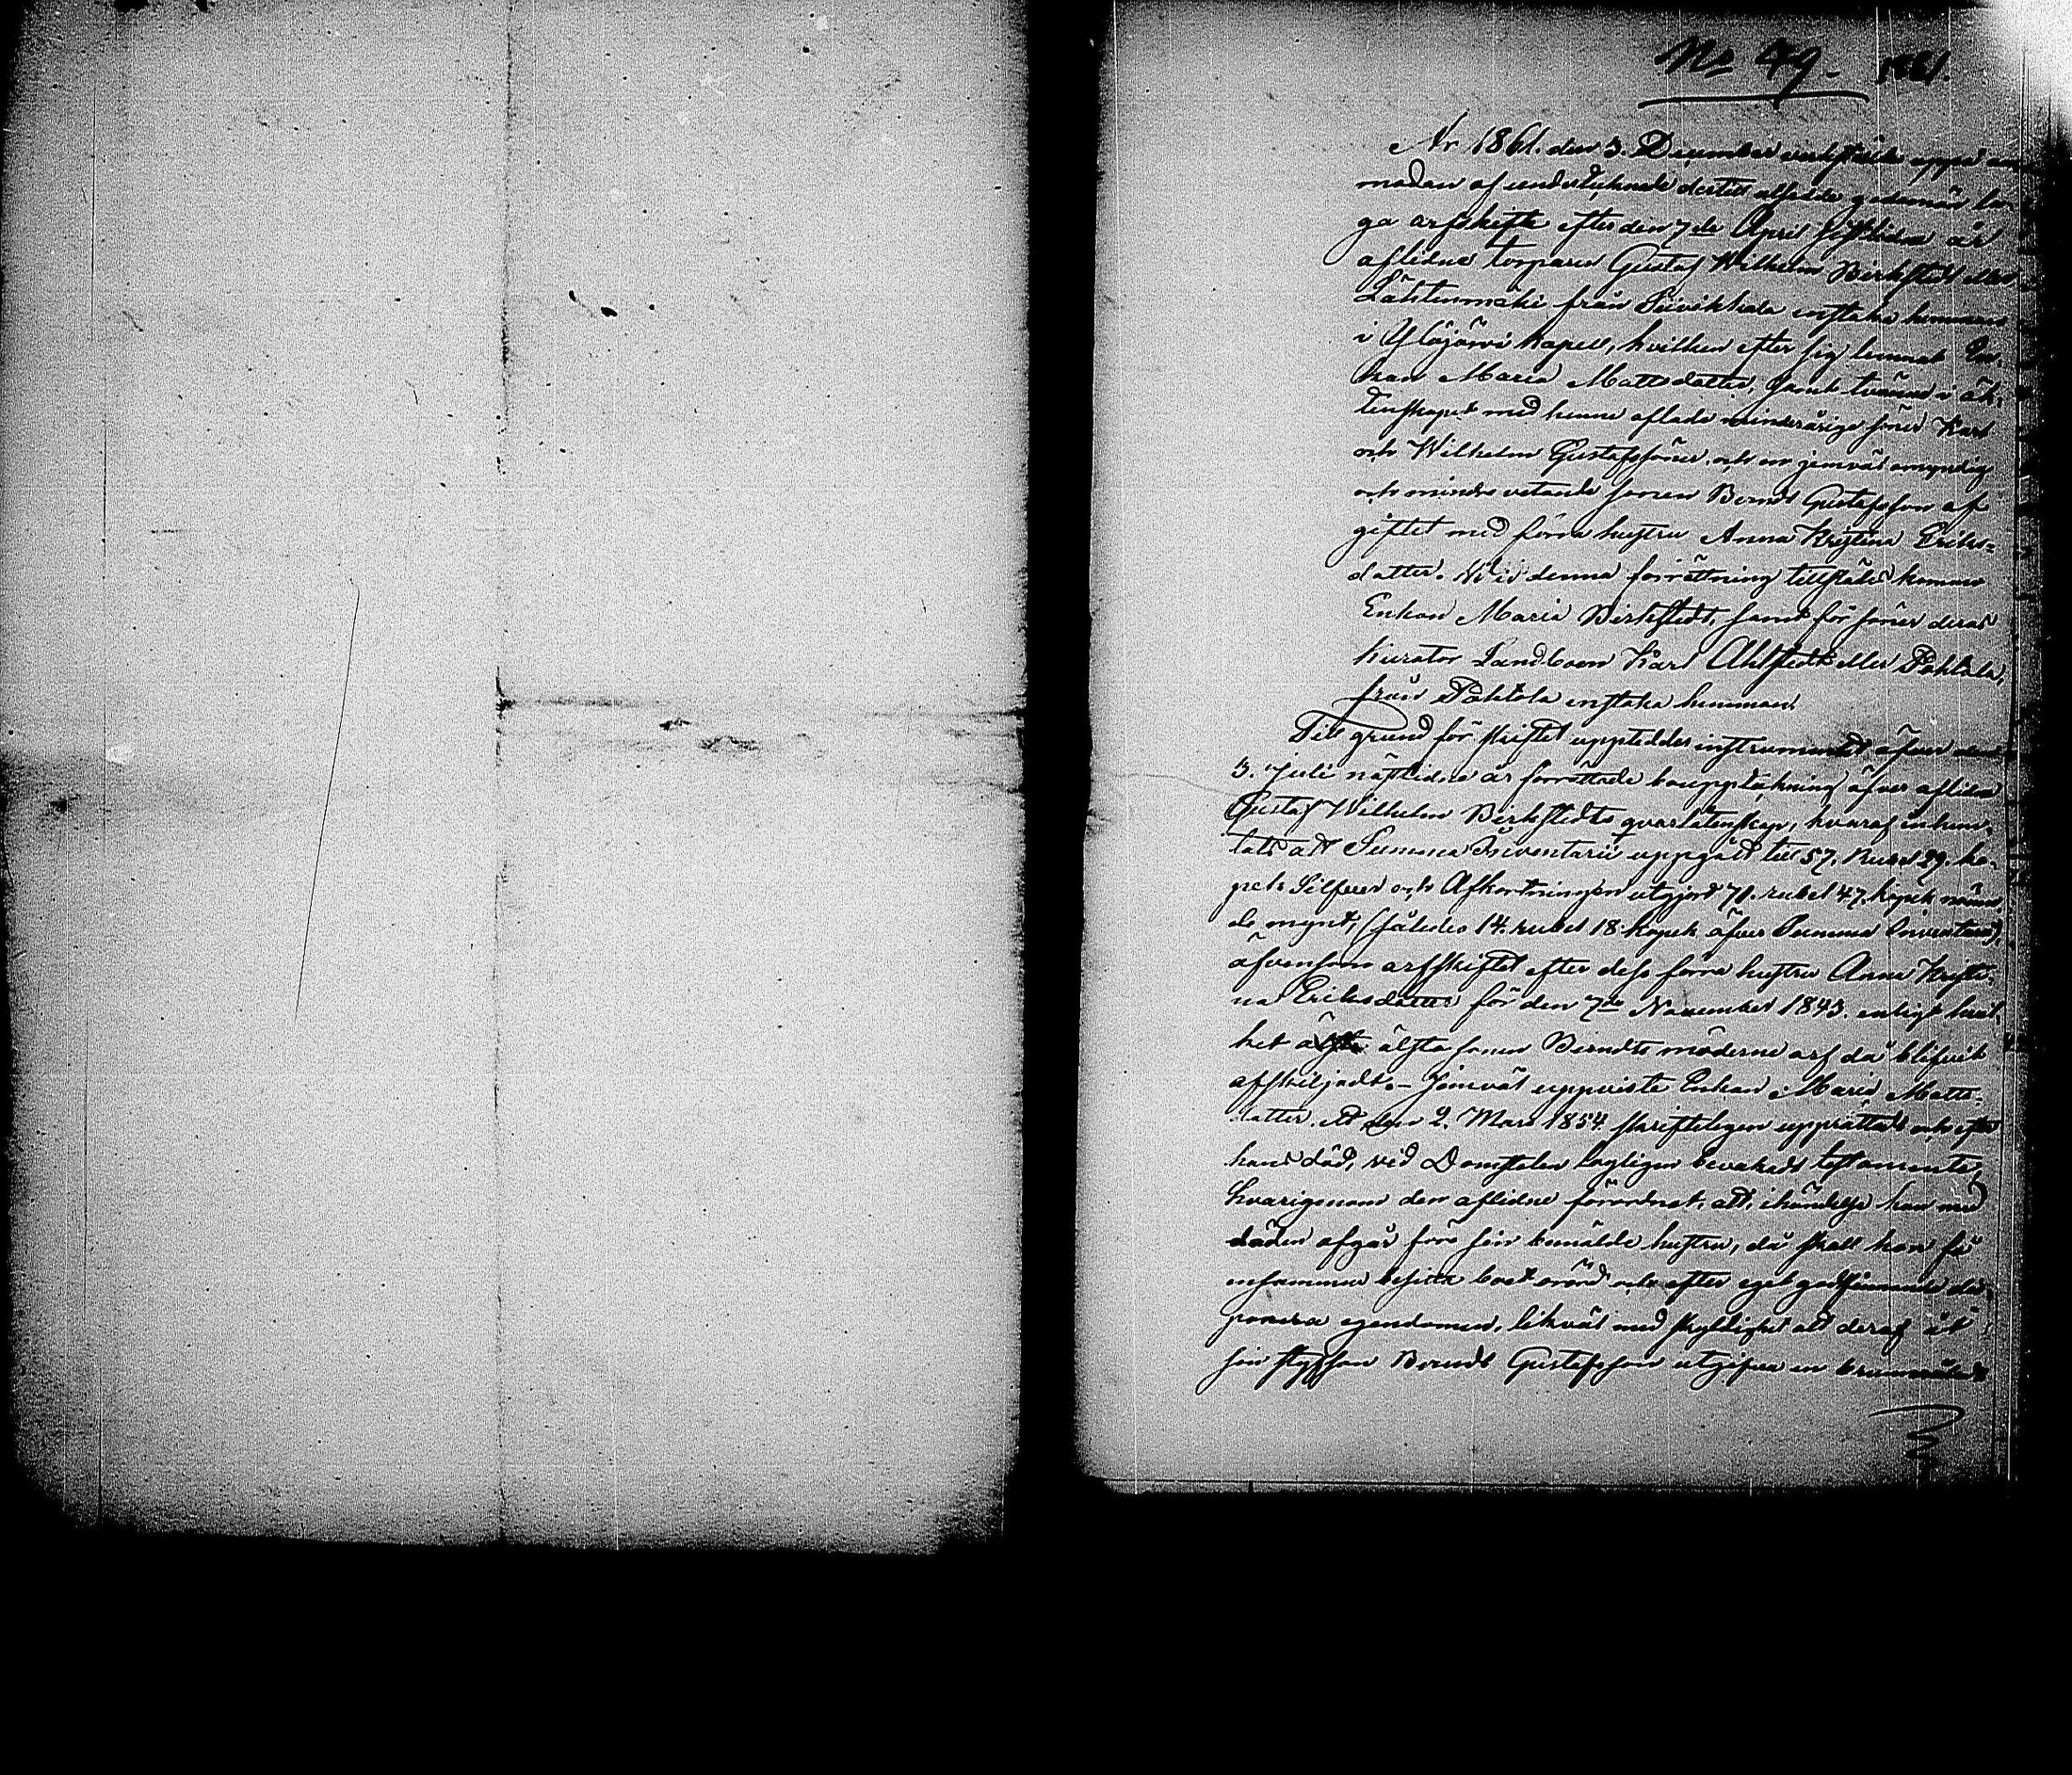 No 79. 1861.
År 1861. den 3. December verkställdes uppå an
modan af undertecknade dertill
ga arfskifte efter den 7de April sistlidne år
aflidne torparen Gustaf Wilhelm Birkstedt eller
Lähteenmäki från Siivikkala enstaka hemman
i Ylöjärvi Kapell, hvilken efter sig lemnat En-
kan Maria Mattsdatter, samt tvänne i äk-
tenskapet med henne aflade minderårige söner Karl
och Wilhelm Gustafssöner, och en jemväl omyndig
och mindre vetande sonen Berndt Gustafsson af
giftet med förra hustru Anna Kristina Eriks-
datter. Vid denna förrättning tillstädes kommo
Enkan Maria Birkstedt, samt för söner deras
Kurator Landboen Karl Ahlstedt eller Pohtola,
från Pohtola enstaka hemman.
Till grund för skiftet uppteddes instrumentet öfver den
3. Juli nästlidne år förrättade bouppteckning öfver aflidne
Gustaf Wilhelm Birkstedts qvarlåtenskap, hvaraf inhem-
tats att Summa Inventarii uppgått till 57. Rubel 29. ko-
pek Silfver och Afkortningen utgjort 71. rubel 47. kopek nämn
de mynt, (således 14. rubel 18. kopek öfver Summa Inventarii),
äfvensom arfskiftet efter dess förra hustru Anna Kristi-
na Eriksdatter för den 7de November 1843. enligt hvil-
ket älsta sonen Berndts möderne arf då blifvit
afskiljadt. – Jemväl uppviste Enkan Maria Matts-
datter ett den 2. Mars 1854 skrifteligen upprättadt och efter
hans död, vid Domstolen lagligen bevakadt testamente,
hvarigenom den aflidne förordnat, att, ihändelse han med
döden afgår före sin bemälde hustru, då skall hon få
ensammen besitta boet orördt och efter eget godtfinnande dis-
ponera egendomen, likväl med skyldighet att deraf åt
sin styfson Berndt Gustafsson utgifva en